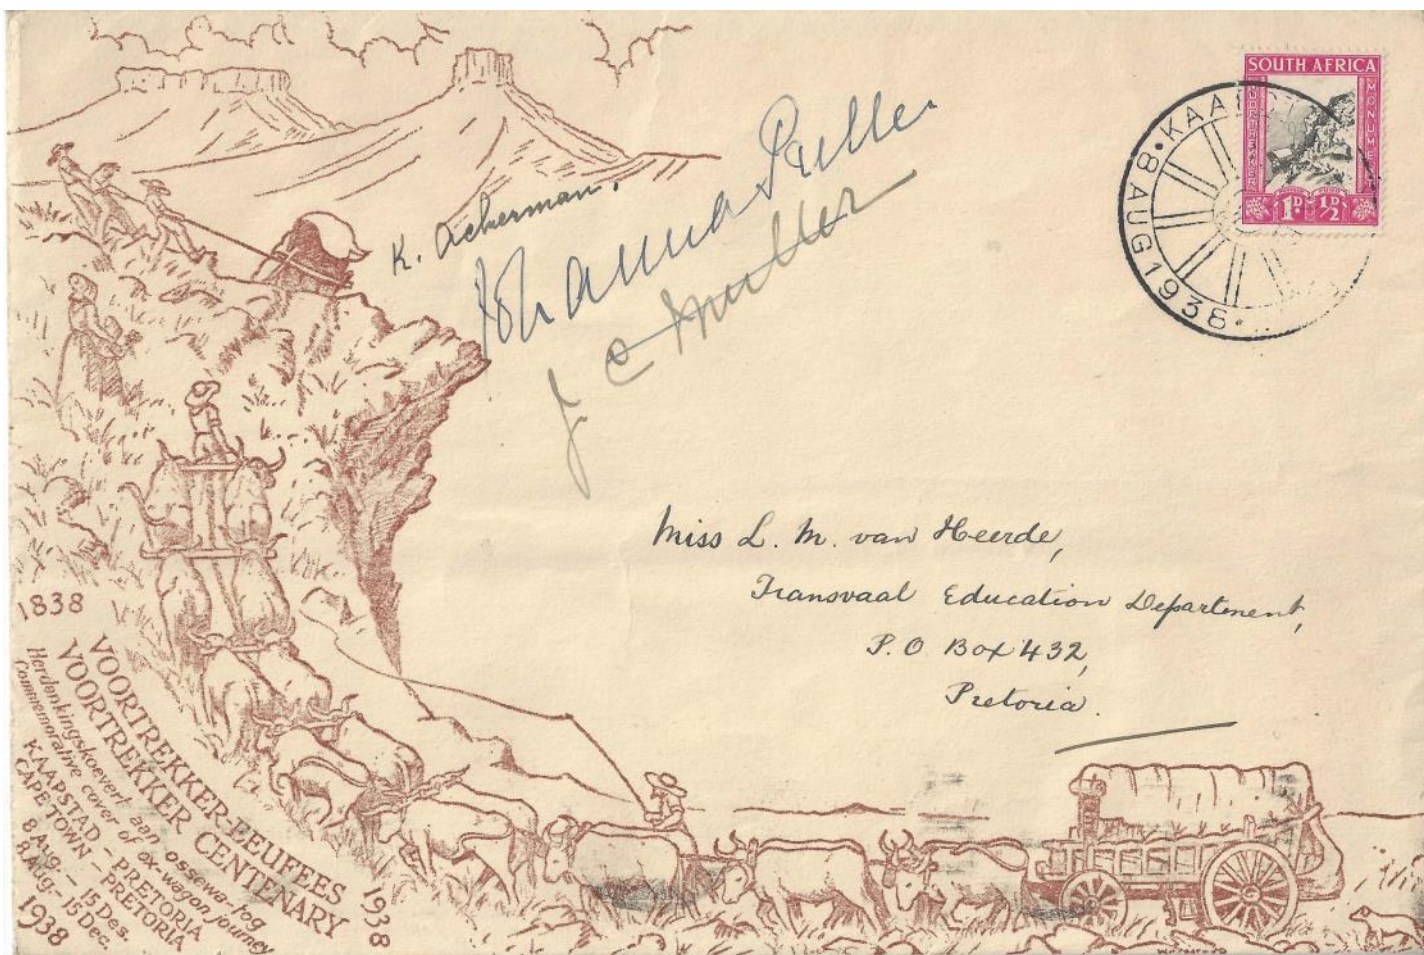 SOUTH AFRICA
VOORTREKKER
MONUMENT
1D. 1/2D
8 AUG 1938
K. Ackerman.
Johanna Preller
J C Muller
Miss L. M. van Heerde,
Transvaal Education Department,
P.O. Box 432,
Pretoria.
1838 VOORTREKKER-EEUFEES 1938
VOORTREKKER CENTENARY
Herdenkingskoevert aan ossewa-tog
Commemorative cover of ox-wagon journey
KAAPSTAD - PRETORIA
CAPE TOWN - PRETORIA
8 Aug. - 15 Des.
8 Aug. - 15 Dec.
1938